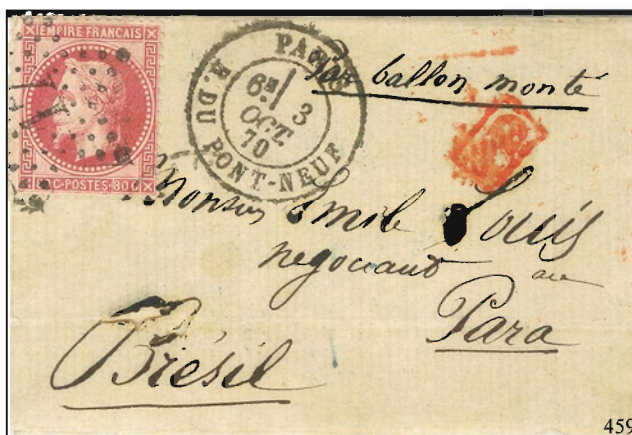 EMPIRE FRANÇAIS
POSTES 80 C
PARIS
R. DU PONT-NEUF
6E/
3
OCT.
70
par ballon monté
Monsieur Emile Louis
negociant au
Para
Brésil
459